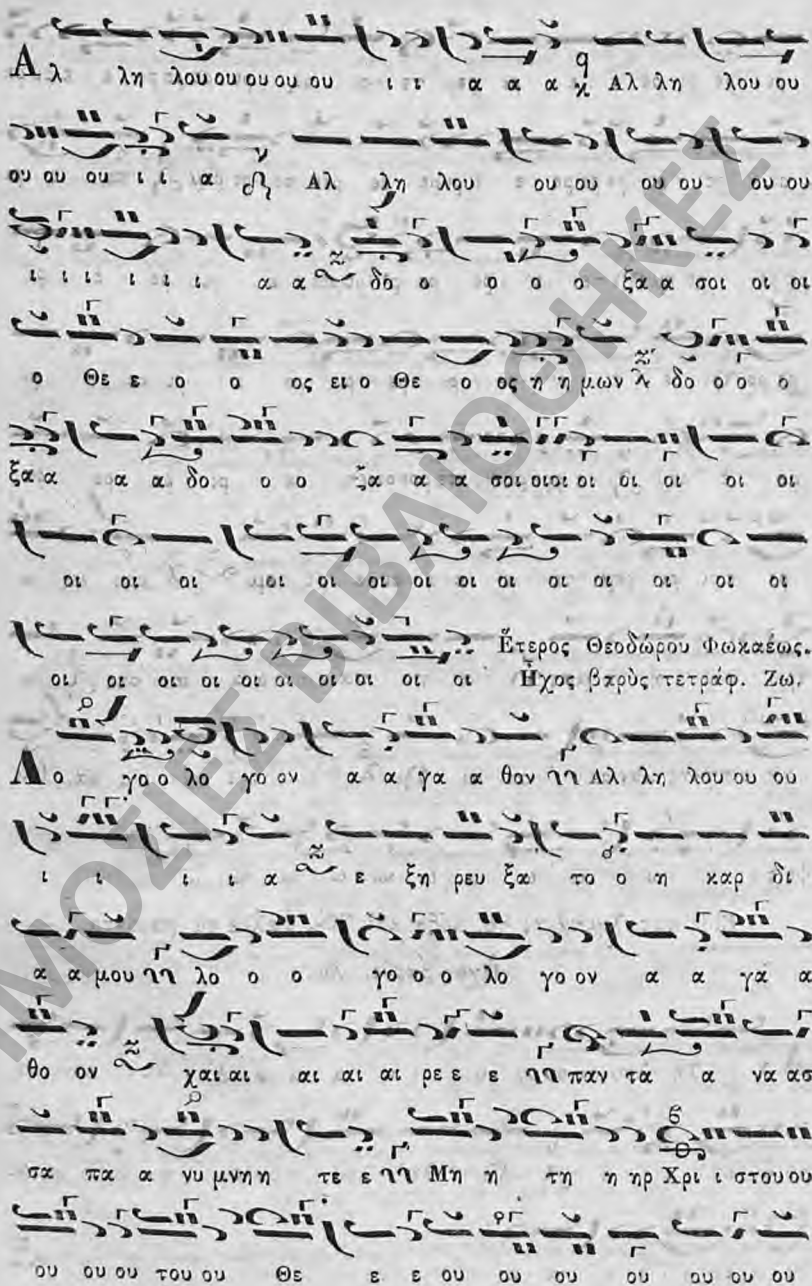 Αλ λη λου ου ου ου ου ι ι α α α Αλ λη λου ου
ου ου ου ι ι α Αλ λη λου ου ου ου ου ου ου
ι ι ι ι ι ι α α δο ο ο ο ο ξα α σοι οι οι
ο Θε ε ο ο ος ει ο Θε ο ος η η μων δο ο ο ο
ξα α α α δο ο ο ξα α α α σοι οι οι οι οι οι οι οι
οι οι οι οι οι οι οι οι οι οι οι οι οι
οι οι οι οι οι οι οι οι οι οι
Ἕτερος Θεοδώρου Φωκαέως.
Ἦχος βαρὺς τετράφ. Ζω.
Λο γο ο λο γο ον α α γα α θον Αλ λη λου ου ου
ι ι ι ι α ε ξη ρευ ξα το ο η καρ δι
α α μου λο ο ο γο ο ο λο γο ον α α γα α
θο ον χαι αι αι αι αι ρε ε ε παν τα α να ασ
σα πα α νυ μνη η τε ε Μη η τη η ηρ Χρι ι στου ου
ου ου ου του ου Θε ε ε ου ου ου ου ου ου ου
ΜΟΣΙΕΣ ΒΙΒΛΙΟΘΗΚΕΣ